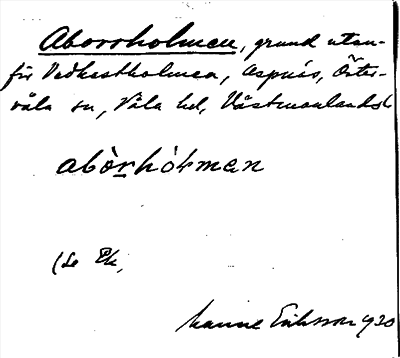 Aborrholmen, grund utan-
för Vedkastholmen, Aspnäs, Öster-
våla sn, Våla hd, Västmanlands l.
abòrhòłmen
(Se Ek,
Manne Eriksson 1930